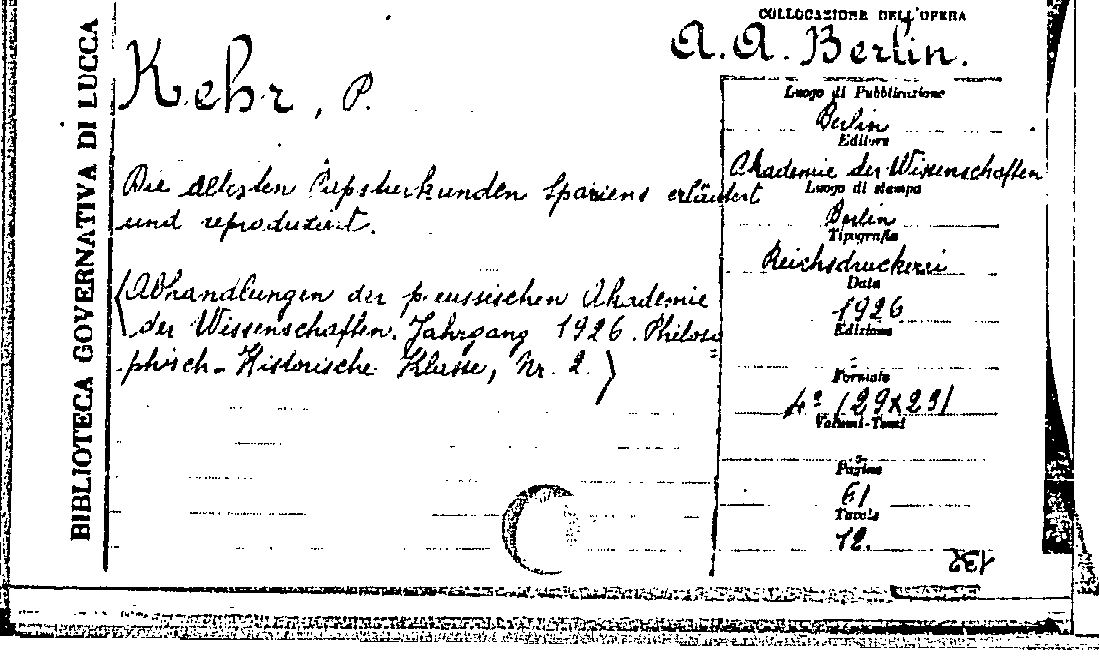 BIBLIOTECA GOVERNATIVA DI LUCCA
COLLOCAZIONE DELL'OPERA
A. A. Berlin.
Kehr, P.
Die ältesten Papsturkunden Spaniens erläutert
und reproduziert.
(Abhandlungen der preussischen Akademie
der Wissenschaften. Jahrgang 1926. Philoso
phisch-Historische Klasse, Nr. 2.)
Luogo di Pubblicazione
Berlin
Editore
Akademie der Wissenschaften
Luogo di stampa
Berlin
Tipografia
Reichsdruckerei
Data
1926
Edizione
Formato
4° (29x23)
Volumi-Tomi
Pagine
61
Tavole
12.